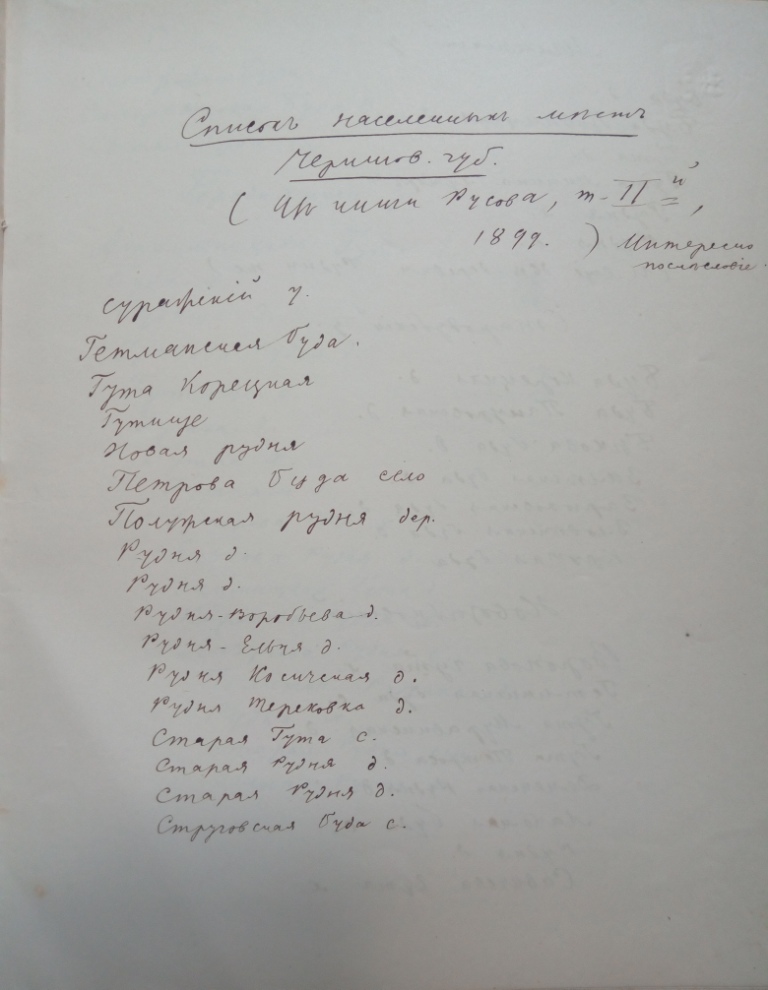 Списокъ населенныхъ мѣстъ
Чернигов. губ.
(Из книги Русова, т. II й,
1899. ) Интересно
послѣсловіе.
Суражскій у.
Гетманская Буда.
Гута Корецкая
Гутище
Новая рудня
Петрова Буда село
Полужская рудня дер.
Рудня д.
Рудня д.
Рудня-Воробьева д.
Рудня-Ельня д.
Рудня Косичская д.
Рудня Тереховка д.
Старая Гута с.
Старая Рудня д.
Старая Рудня д.
Струговская Буда с.